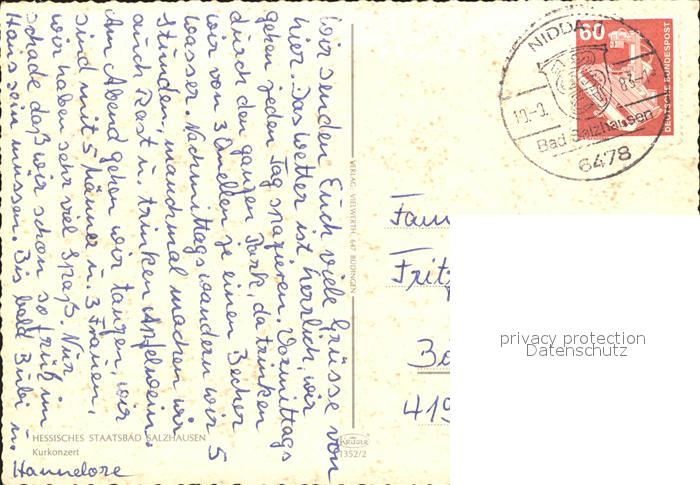 Wir senden Euch viele Grüsse von
hier. Das Wetter ist herrlich, wir
gehen jeden Tag spazieren. Vormittags
durch den ganzen Park, da trinken
wir von 3 Quellen je einen Becher
Wasser. Nachmittags wandern wir 5
Stunden, manchmal machen wir
auch Rast u. trinken Apfelwein.
Am Abend gehen wir tanzen, wir
sind mit 5 Männer u. 3 Frauen,
wir haben sehr viel Spaß. Nur
schade daß wir schon so früh im
Haus sein müssen. Bis bald Bubi u.
Hannelore
HESSISCHES STAATSBAD SALZHAUSEN
Kurkonzert
VERLAG: VIELWERTH, 647 BÜDINGEN
KRÜGER
1352/2
60
DEUTSCHE BUNDESPOST
NIDDA
Bad Salzhausen
6478
Fam
Fritz
419
privacy protection
Datenschutz